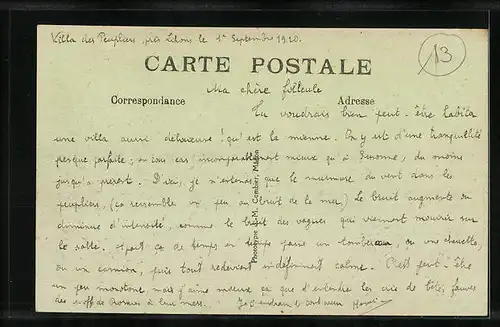 Villa des Peupliers, près Lihons le 1er Septembre 1920.
13
CARTE POSTALE
Correspondance
Adresse
Ma chère folleule
Tu voudrais bien peut-être habiter
une villa aussi délicieuse qu'est la mienne. On y est d'une tranquillité
presque parfaite; en tous cas, incomparablement mieux qu'à Peronne, du moins
jusqu'à présent. D'ici, je n'entends que le murmure du vent dans les
peupliers, (ça ressemble un peu au bruit de la mer) Le bruit augmente ou
diminue d'intensité, comme le bruit des vagues qui viennent mourir sur
le sable. A part ça de temps en temps passe un tombereau, ou une charrette,
ou un camion, puis tout redevient indéfiniment calme. C'est peut-être
un peu monotone, mais j'aime mieux ça que d'entendre les cris de bêtes fauves
des de à leur mess. Je
Phototypie J.-M. Combier, Mâcon